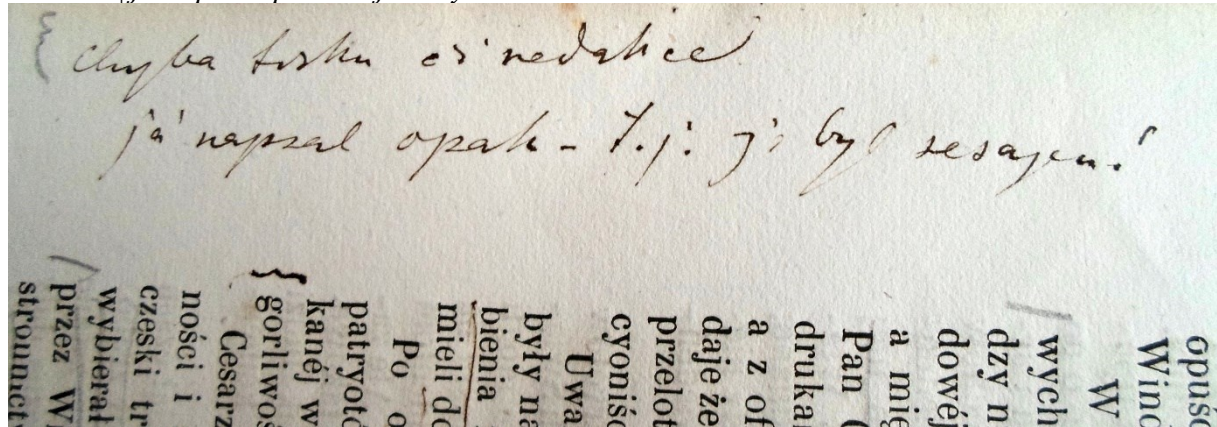 chyba tisku či redakce
já napsal opak - t.j. já byl sesazen!
opuść
Winc
W
wych
dzy n
dowéj
a mię
Pan
druka
a z of
daje że
przelot
cyoniś
Uwa
były na
bienia
mieli do
Po o
patryotó
kanéj w
gorliwoś
Cesarz
ności i
czeski tr
wybierał
przez W
stronnict